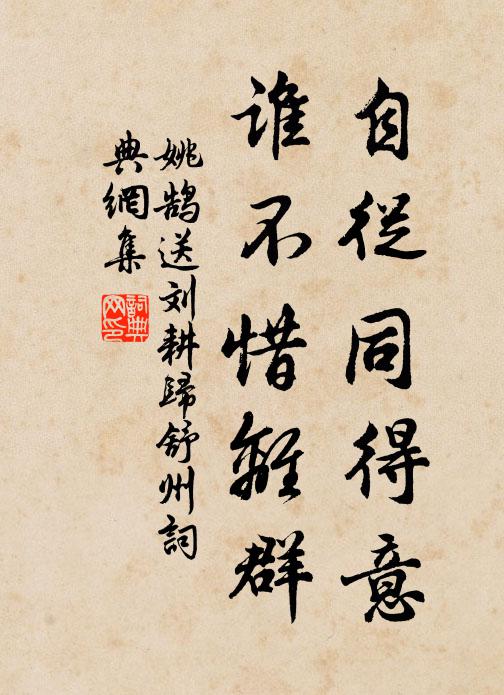 自從同得意
誰不惜離群
姚鵠送刘耕歸舒州詞
典網集
詞典
网印